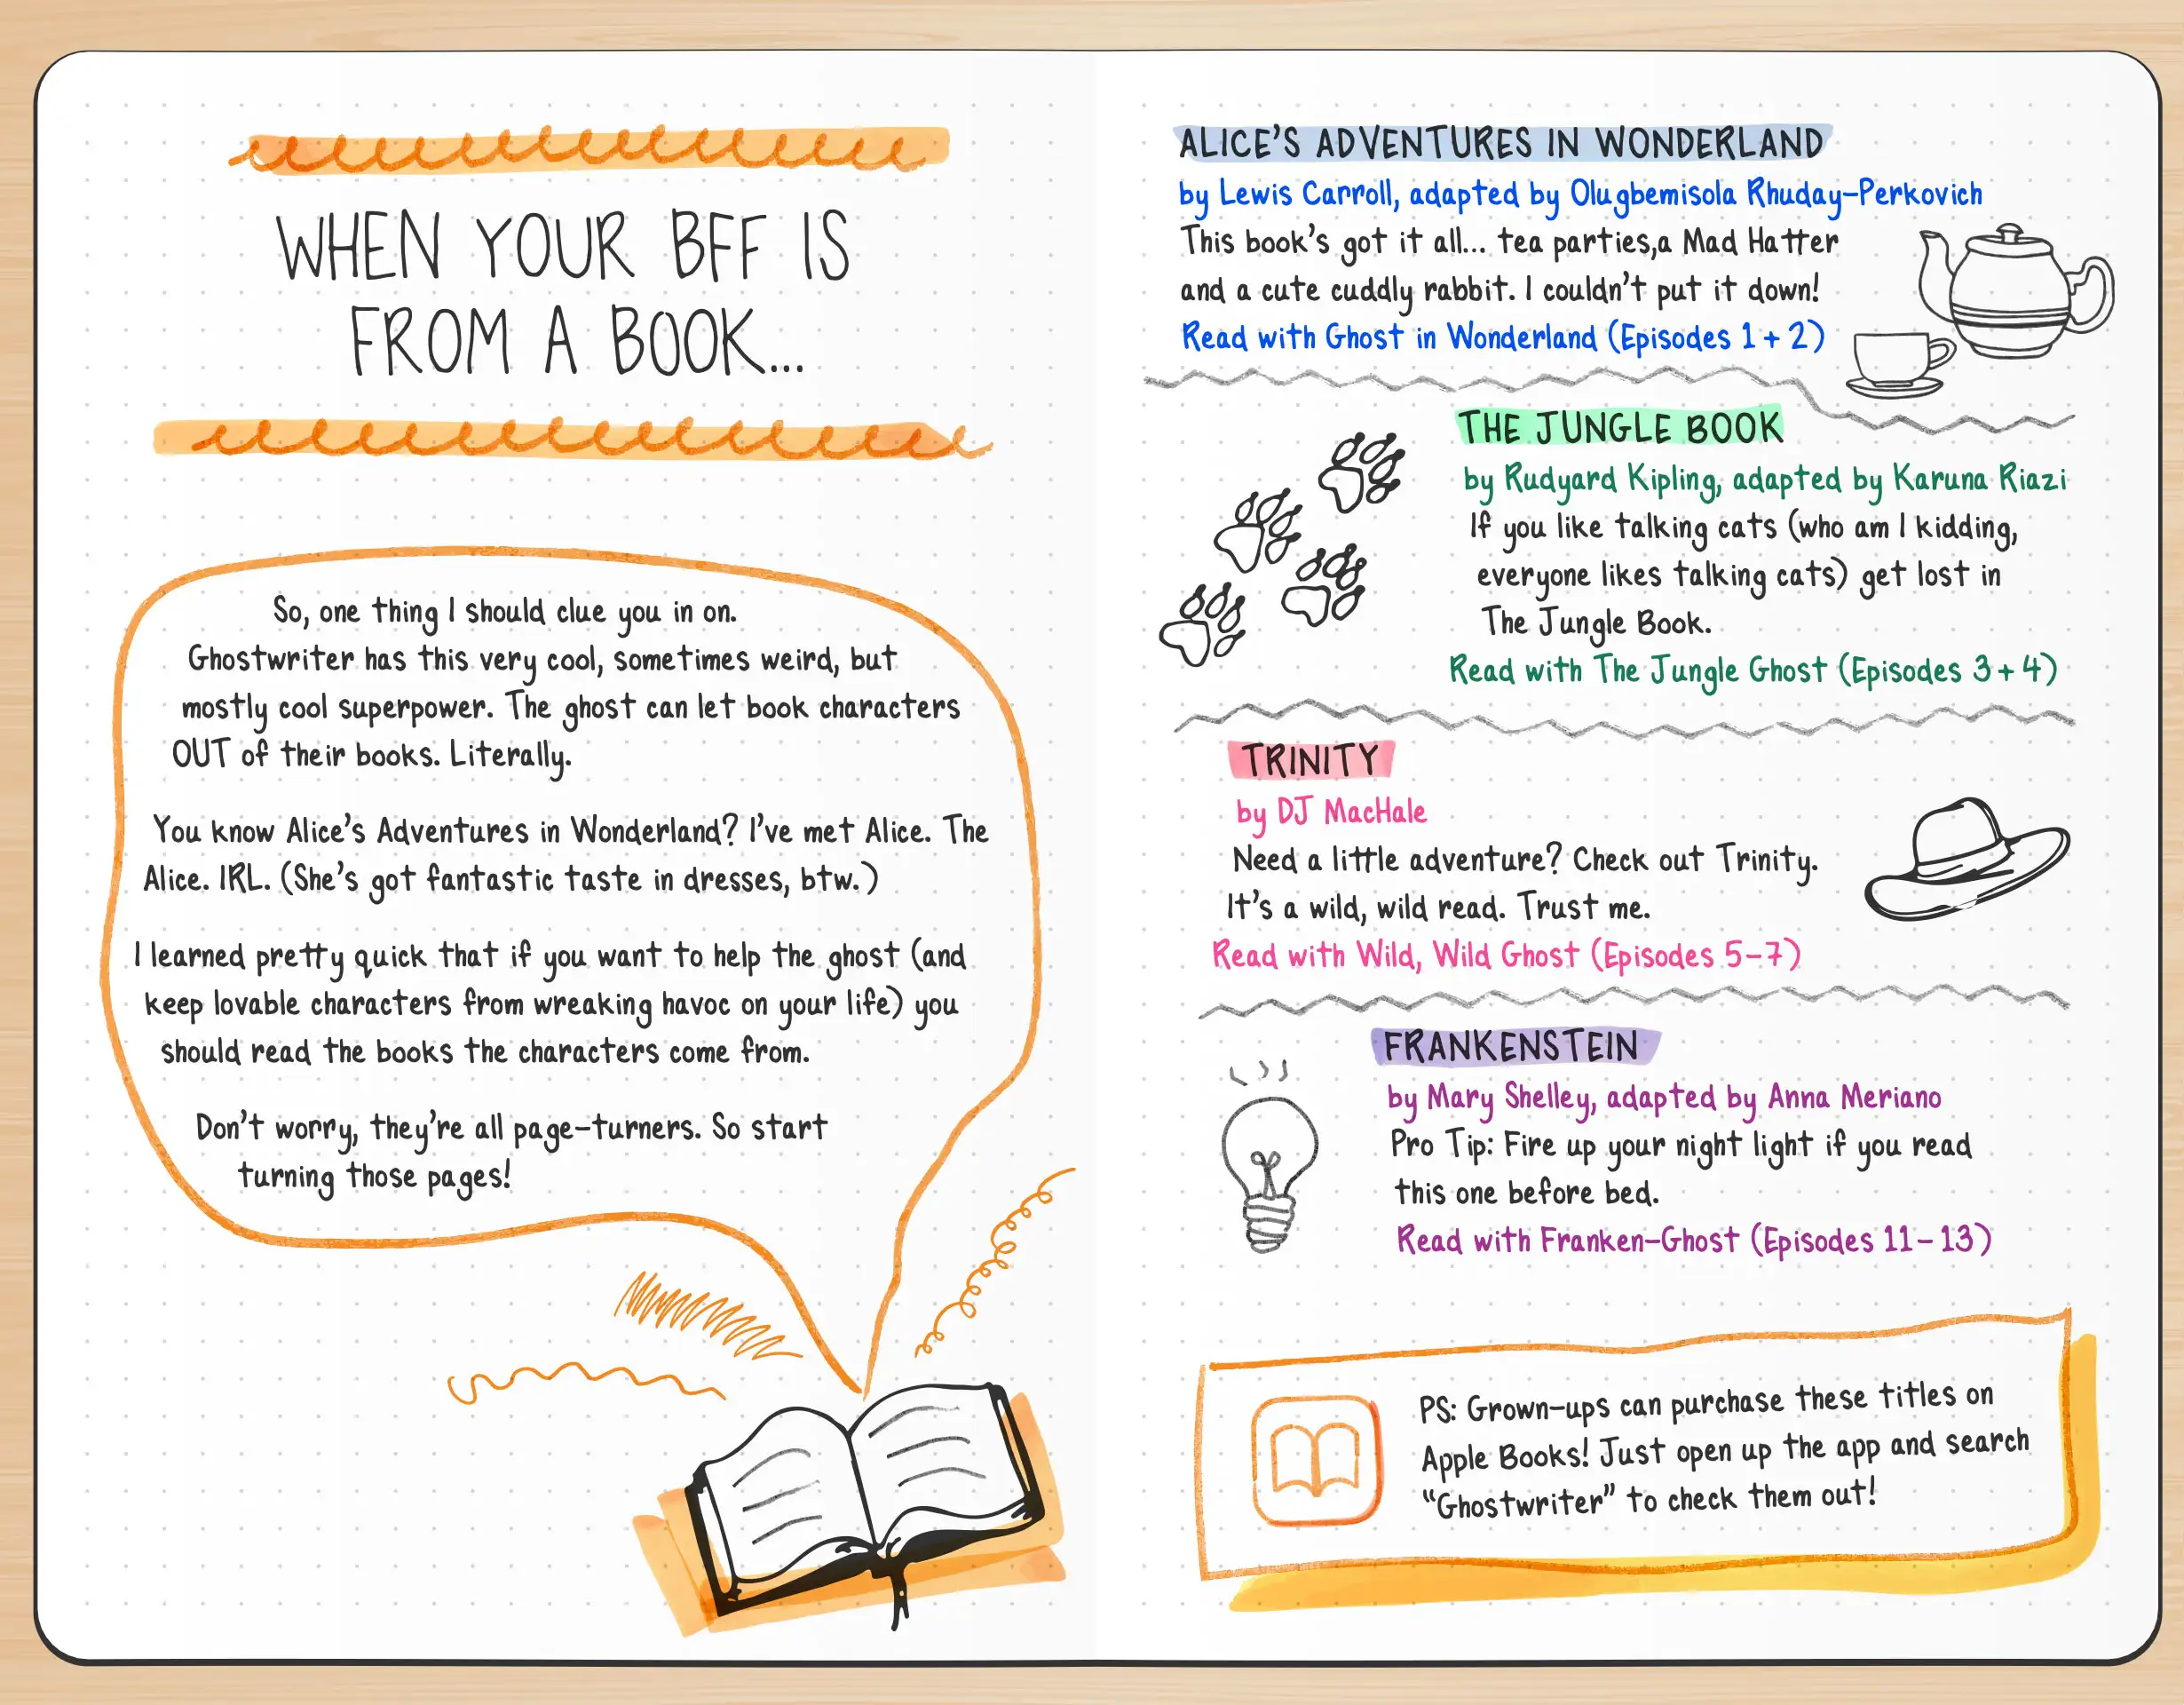 WHEN YOUR BFF IS
FROM A BOOK...
So, one thing I should clue you in on.
Ghostwriter has this very cool, sometimes weird, but
mostly cool superpower. The ghost can let book characters
OUT of their books. Literally.
You know Alice's Adventures in Wonderland? I've met Alice. The
Alice. IRL. (She's got fantastic taste in dresses, btw.)
I learned pretty quick that if you want to help the ghost (and
keep lovable characters from wreaking havoc on your life) you
should read the books the characters come from.
Don't worry, they're all page-turners. So start
turning those pages!
ALICE'S ADVENTURES IN WONDERLAND
by Lewis Carroll, adapted by Olugbemisola Rhuday-Perkovich
This book's got it all... tea parties,a Mad Hatter
and a cute cuddly rabbit. I couldn't put it down!
Read with Ghost in Wonderland (Episodes 1 + 2)
THE JUNGLE BOOK
by Rudyard Kipling, adapted by Karuna Riazi
If you like talking cats (who am I kidding,
everyone likes talking cats) get lost in
The Jungle Book.
Read with The Jungle Ghost (Episodes 3 + 4)
TRINITY
by DJ MacHale
Need a little adventure? Check out Trinity.
It's a wild, wild read. Trust me.
Read with Wild, Wild Ghost (Episodes 5-7)
FRANKENSTEIN
by Mary Shelley, adapted by Anna Meriano
Pro Tip: Fire up your night light if you read
this one before bed.
Read with Franken-Ghost (Episodes 11-13)
PS: Grown-ups can purchase these titles on
Apple Books! Just open up the app and search
"Ghostwriter" to check them out!